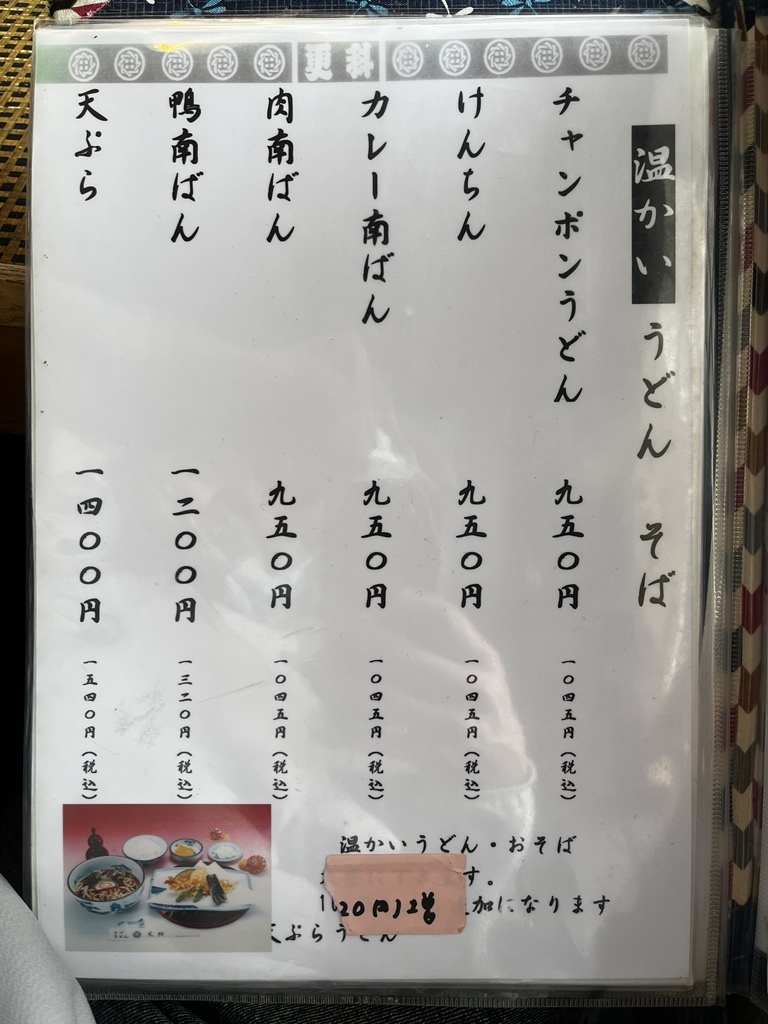 更科
温かい うどん そば
チャンポンうどん 九五〇円 一〇四五円(税込)
けんちん 九五〇円 一〇四五円(税込)
カレー南ばん 九五〇円 一〇四五円(税込)
肉南ばん 九五〇円 一〇四五円(税込)
鴨南ばん 一二〇〇円 一三二〇円(税込)
天ぷら 一四〇〇円 一五四〇円(税込)
温かいうどん・おそば
す。
加になります
20円増
天ぷらうどん